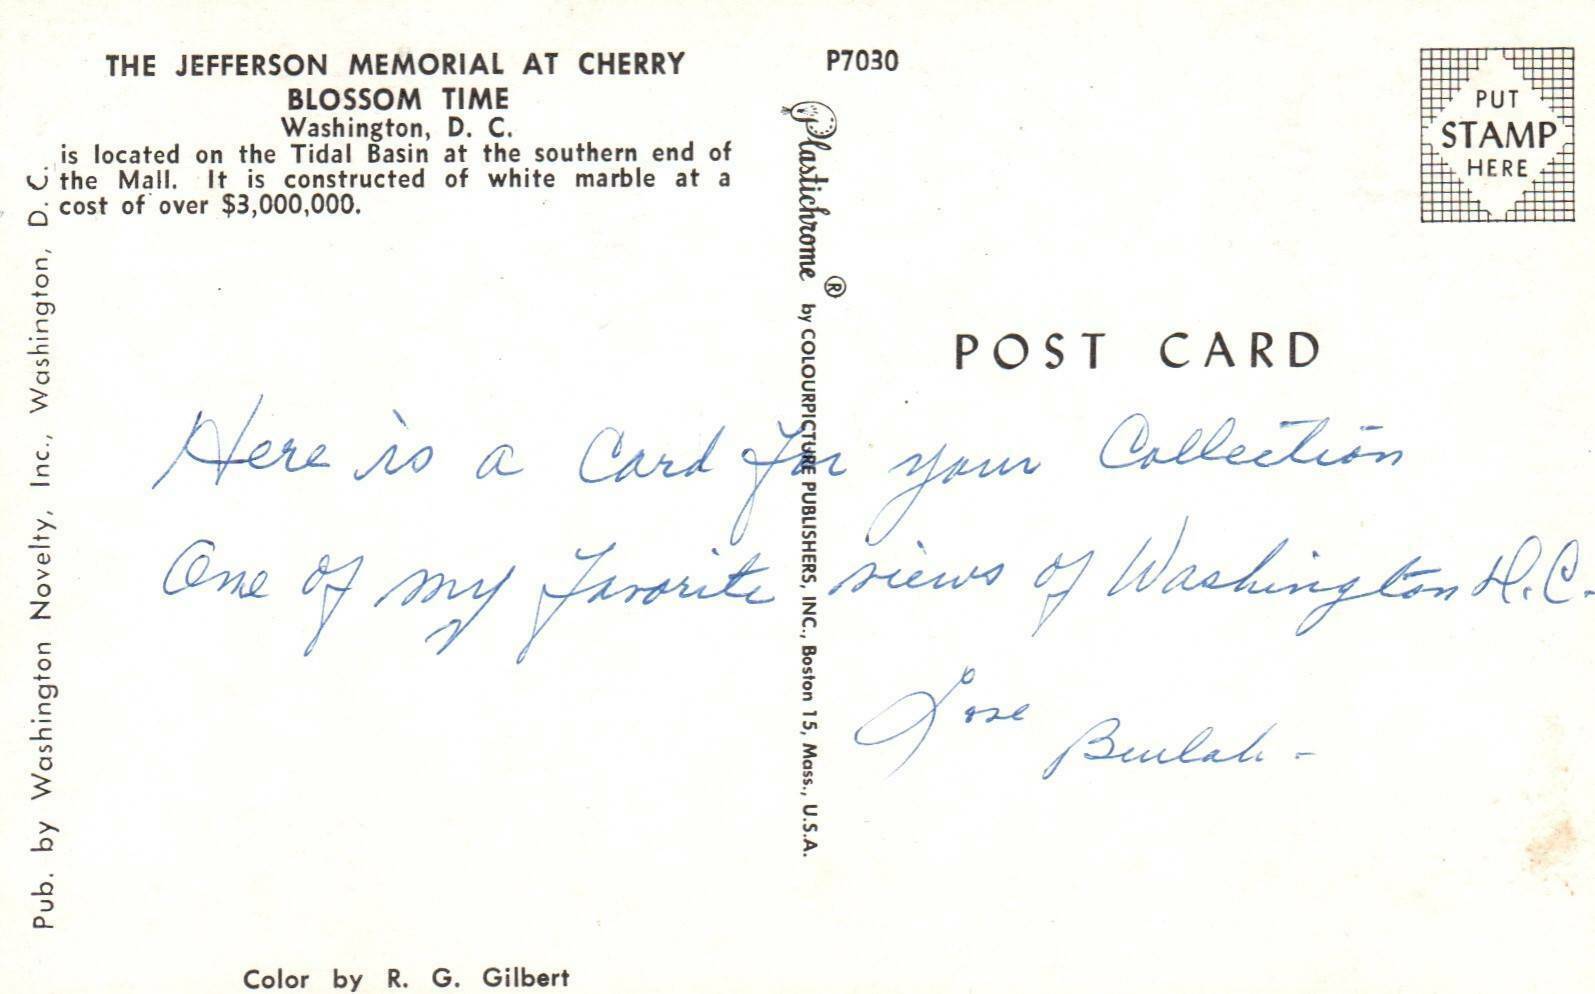 THE JEFFERSON MEMORIAL AT CHERRY
BLOSSOM TIME
Washington, D. C.
is located on the Tidal Basin at the southern end of
the Mall. It is constructed of white marble at a
cost of over $3,000,000.
Pub. by Washington Novelty, Inc., Washington, D. C.
P7030
Plastichrome ® by COLOURPICTURE PUBLISHERS, INC., Boston 15, Mass., U.S.A.
PUT
STAMP
HERE
POST CARD
Here is a Card for your Collection
One of my favorite views of Washington D.C.
Love
Beulah -
Color by R. G. Gilbert